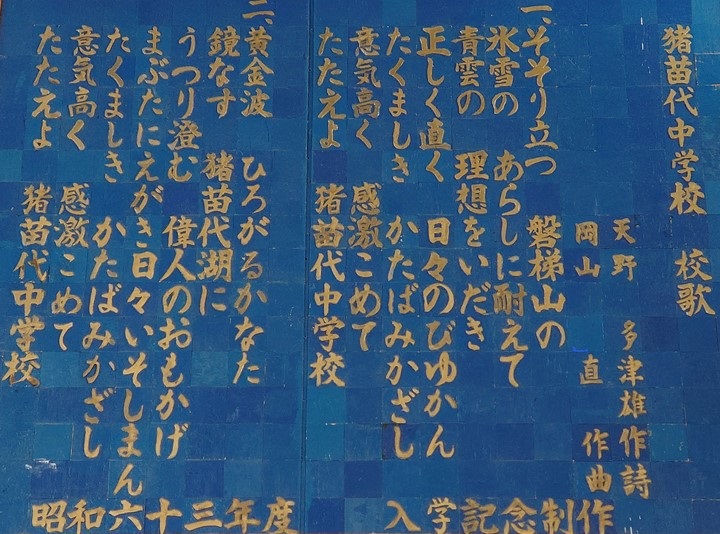 猪苗代中学校 校歌
天野 多津雄 作詩
岡山 直 作曲
一、そそり立つ 磐梯山の
氷雪の あらしに耐えて
青雲の 理想をいだき
正しく直く 日々のびゆかん
たくましき かたばみかざし
意気高く 感激こめて
たたえよ 猪苗代中学校
二、黄金波 ひろがるかなた
鏡なす 猪苗代湖に
うつり澄む 偉人のおもかげ
まぶたにえがき日々いそしまん
たくましき かたばみかざし
意気高く 感激こめて
たたえよ 猪苗代中学校
昭和六十三年度 入学記念制作